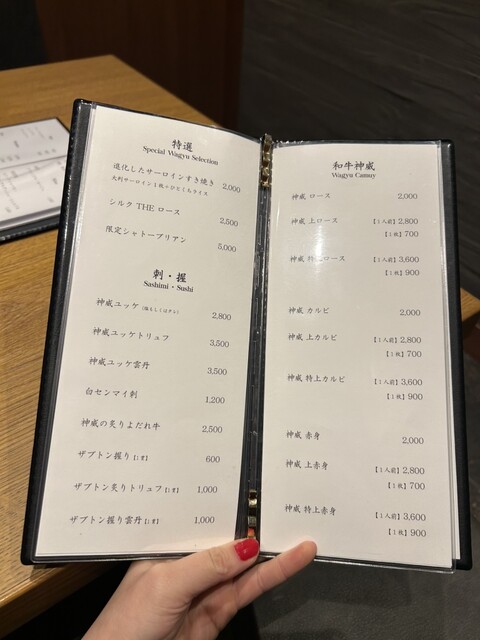 特選
Special Wagyu Selection
進化したサーロインすき焼き 2,000
大判サーロイン1枚+ひとくちライス
シルク THE ロース 2,500
限定シャトーブリアン 5,000
刺・握
Sashimi・Sushi
神威ユッケ 2,800
神威ユッケトリュフ 3,500
神威ユッケ雲丹 3,500
白センマイ刺 1,200
神威の炙りよだれ牛 2,500
ザブトン握り【1貫】 600
ザブトン炙りトリュフ【1貫】 1,000
ザブトン握り雲丹【1貫】 1,000
和牛神威
Wagyu Camuy
神威 ロース 2,000
神威 上ロース 【1人前】2,800
【1枚】700
神威 特上ロース 【1人前】3,600
【1枚】900
神威 カルビ 2,000
神威 上カルビ 【1人前】2,800
【1枚】700
神威 特上カルビ 【1人前】3,600
【1枚】900
神威 赤身 2,000
神威 上赤身 【1人前】2,800
【1枚】700
神威 特上赤身 【1人前】3,600
【1枚】900